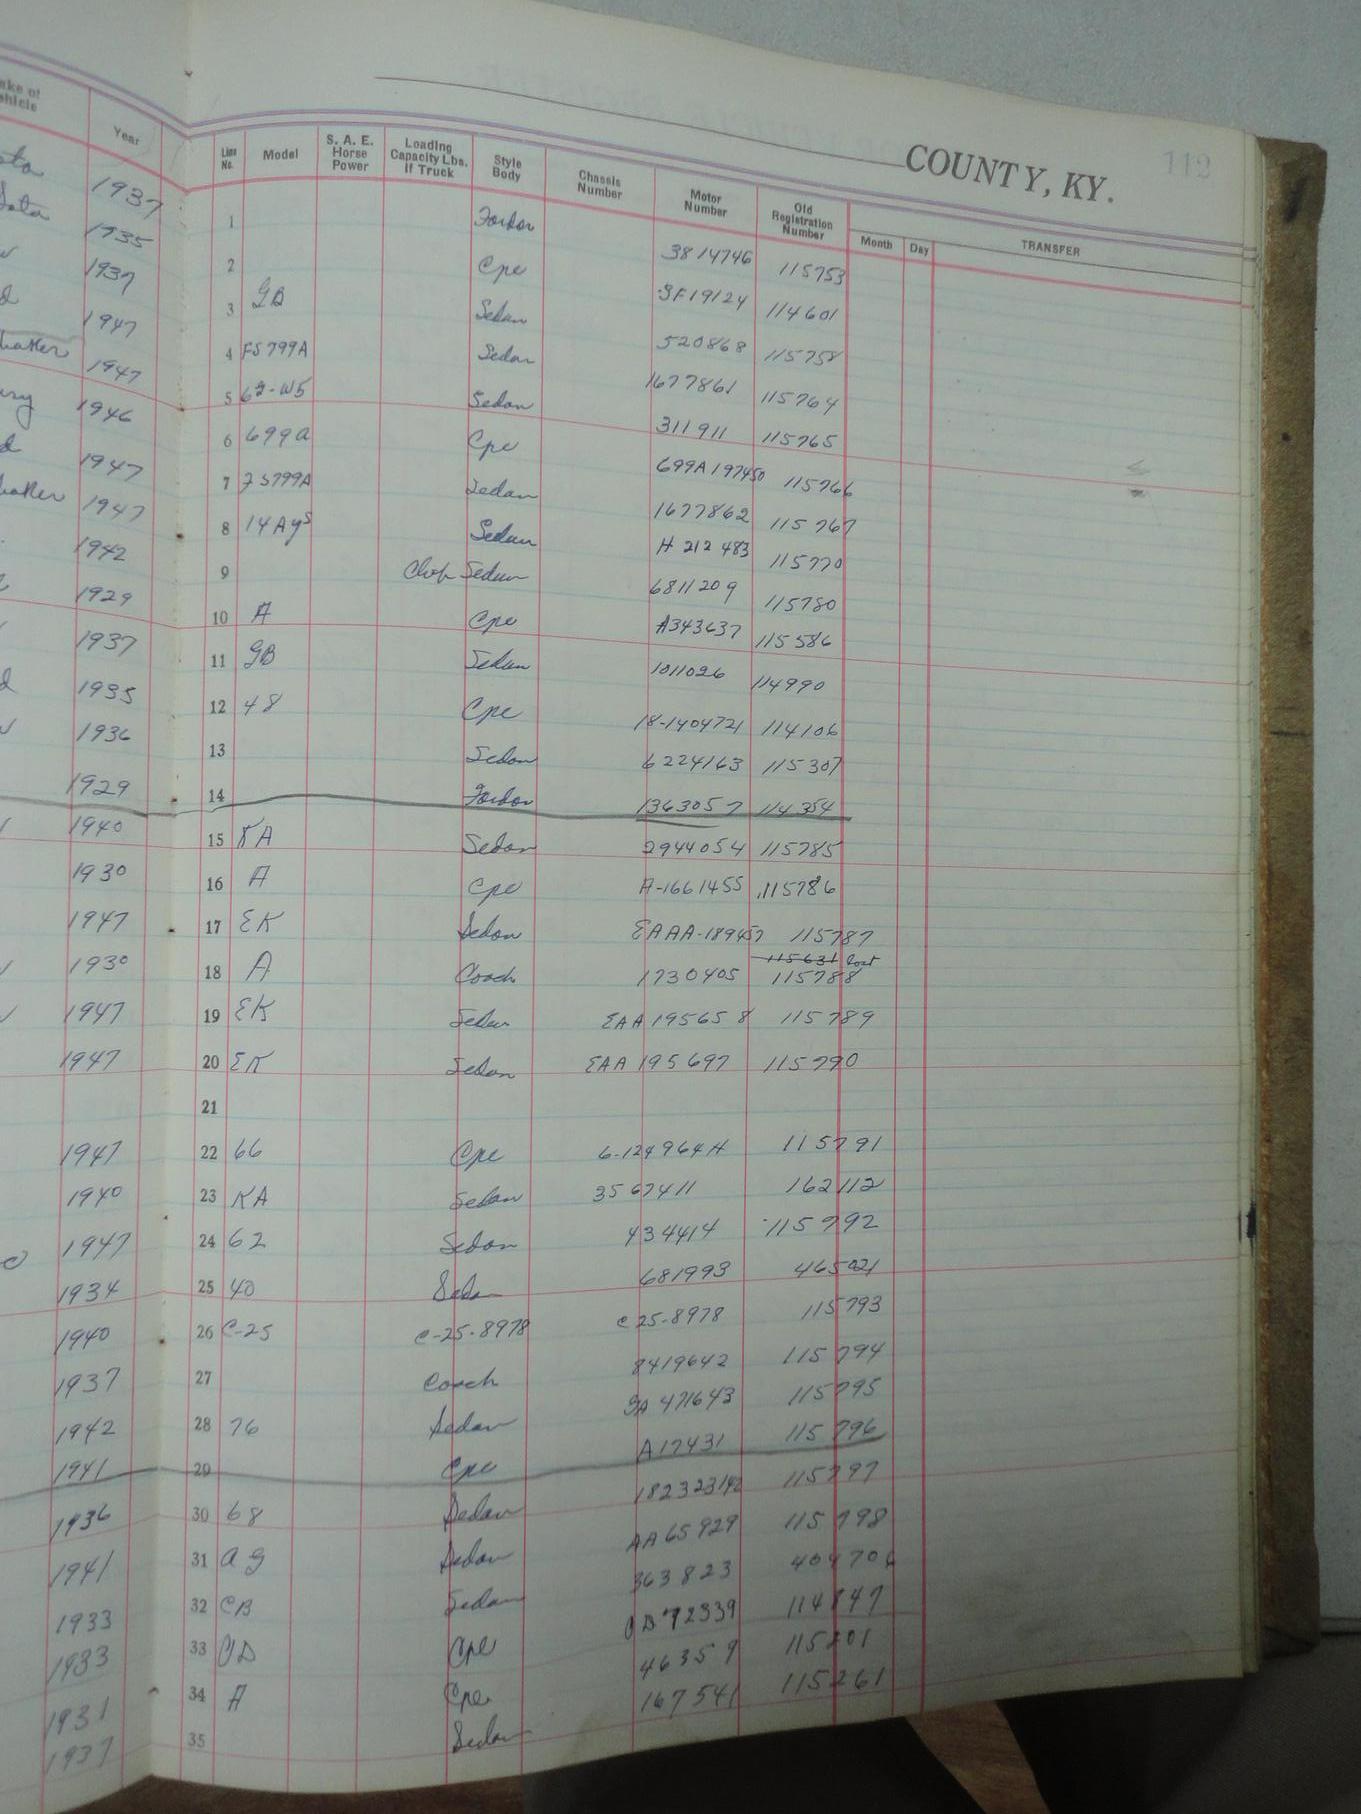 COUNTY, KY. 112
Year Line No. Model S. A. E. Horse Power Loading Capacity Lbs. If Truck Style Body Chassis Number Motor Number Old Registration Number Month Day TRANSFER
1937 1 Fordor 3814746 115753
1935 2 Cpe GF19124 114601
1937 3 GB Sedan 520868 115758
1947 4 FS799A Sedan 1677861 115764
1947 5 62-W5 Sedan 311911 115765
1946 6 699a Cpe 699A197450 115766
1947 7 FS799A Sedan 1677862 115767
1947 8 14Ay5 Sedan H 212 483 115770
1942 9 Club Sedan 6811209 115780
1929 10 A Cpe A343637 115586
1937 11 GB Sedan 1011026 114990
1935 12 48 Cpe 18-1404721 114106
1936 13 Sedan 6224163 115307
1929 14 Fordor 1363057 114354
1940 15 KA Sedan 2944054 115785
1930 16 A Cpe A-1661455 115786
1947 17 EK Sedan EAAA-189457 115787
115631 Lost
1930 18 A Coach 1730405 115788
1947 19 EK Sedan EAA195658 115789
1947 20 EK Sedan EAA 195697 115790
21
1947 22 66 Cpe 6-124964H 115791
1940 23 KA Sedan 3567411 162112
1947 24 62 Sedan 434414 115792
1934 25 40 Sedan 681993 465021
1940 26 C-25 C-25-8978 C25-8978 115793
1937 27 Coach 8419642 115794
1942 28 76 Sedan GA 471643 115795
1941 29 Cpe A17431 115796
1936 30 68 Sedan 182323192 115797
1941 31 AG Sedan AA65929 115798
1933 32 CB Sedan 363823 404706
1933 33 CD Cpe CD72339 114847
1931 34 A Cpe 46359 115801
1937 35 Sedan 167541 115261